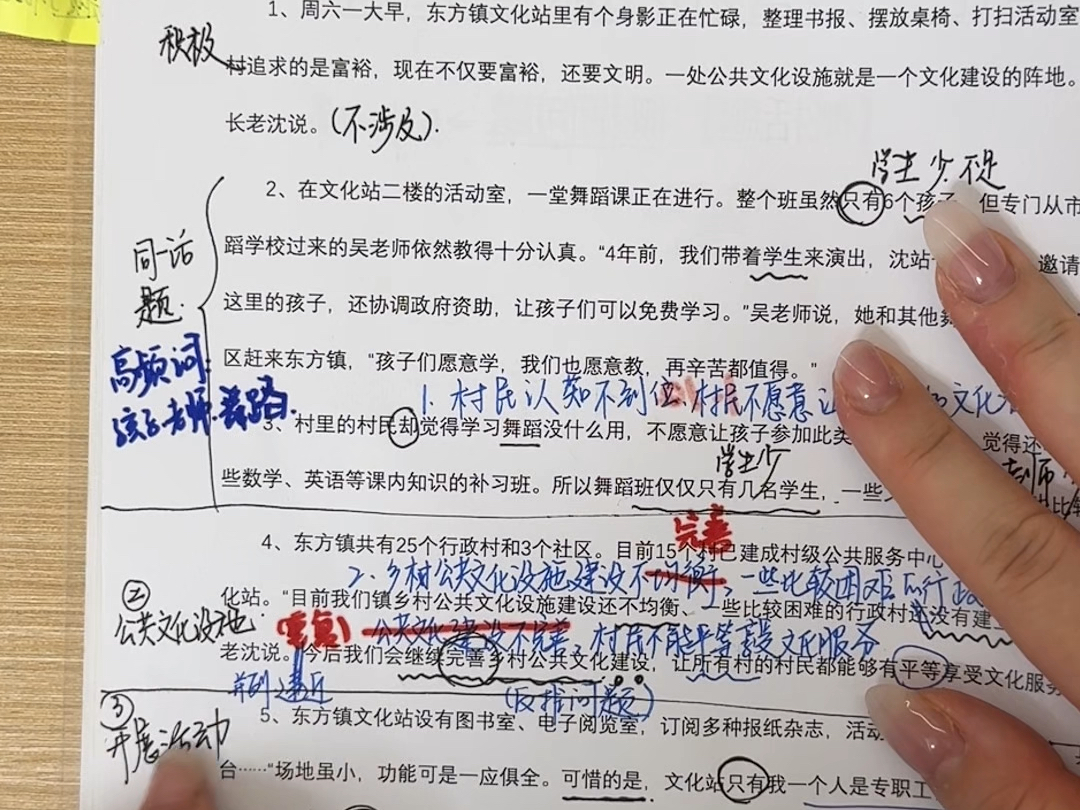 1、周六一大早，东方镇文化站里有个身影正在忙碌，整理书报、摆放桌椅、打扫活动室
积极
村追求的是富裕，现在不仅要富裕，还要文明。一处公共文化设施就是一个文化建设的阵地。
长老沈说。(不涉及).
学生少.不足
2、在文化站二楼的活动室，一堂舞蹈课正在进行。整个班虽然只有6个孩子，但专门从市
同一话题.
蹈学校过来的吴老师依然教得十分认真。“4年前，我们带着学生来演出，沈站 邀请
这里的孩子，还协调政府资助，让孩子们可以免费学习。”吴老师说，她和其他舞
高频词:
孩子.老师.舞蹈.
区赶来东方镇，“孩子们愿意学，我们也愿意教，再辛苦都值得。”
1.村民认知不到位 村民不愿意让 文化
3、村里的村民却觉得学习舞蹈没什么用，不愿意让孩子参加此类 觉得还
学生少
老师
些数学、英语等课内知识的补习班。所以舞蹈班仅仅只有几名学生，一些
完善
4、东方镇共有25个行政村和3个社区。目前15个村已建成村级公共服务中心
2.乡村公共文化设施建设不均衡，一些比较困难的行政
②
公共文化设施.
化站。“目前我们镇乡村公共文化设施建设还不均衡、一些比较困难的行政村还没有建
(重复) 公共文化建设不完善，村民不能平等享受文化服务
老沈说。“今后我们会继续完善乡村公共文化建设，让所有村的村民都能够有平等享受文化服务
并列递近
(反推问题)
③
开展活动
5、东方镇文化站设有图书室、电子阅览室，订阅多种报纸杂志，活动
台……“场地虽小，功能可是一应俱全。可惜的是，文化站只有我一个人是专职工